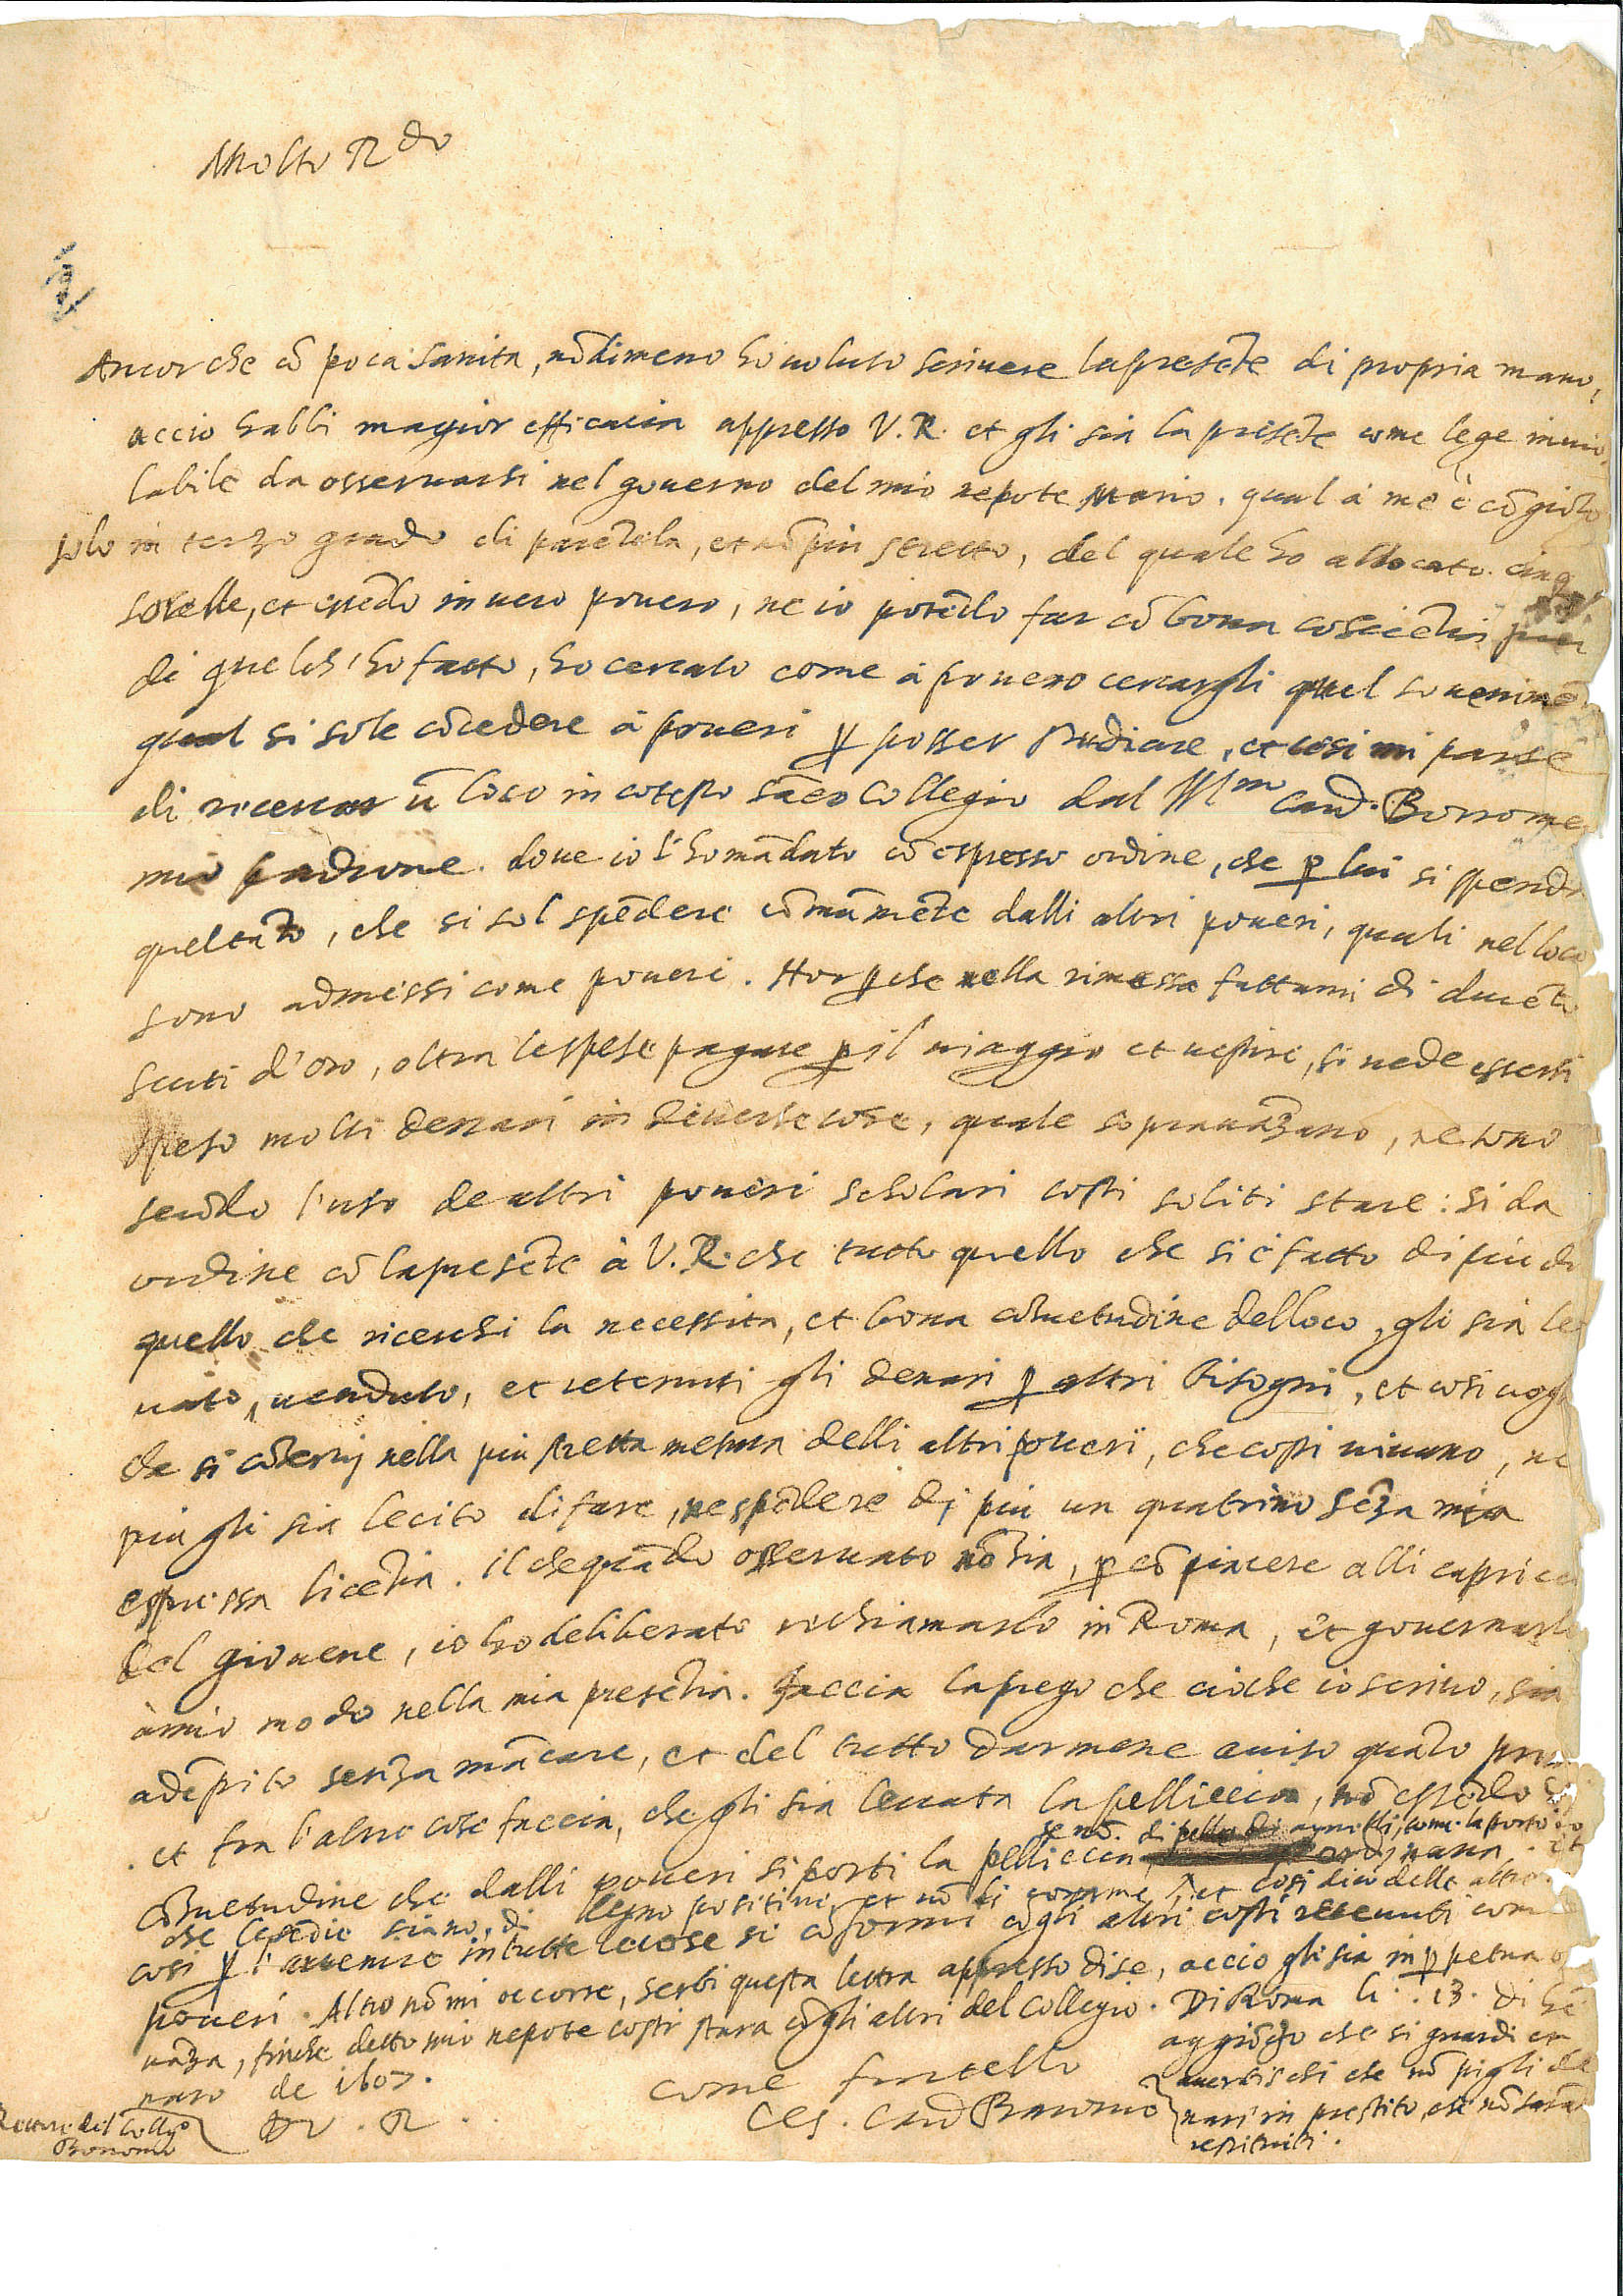 Molto R.do
Ancor che cō poca sanita, nōdimeno ho voluto scrivere la presēte di propria mano,
accio habbi magior efficacia appresso V. R. et gli sia la presēte come lege invio
labile da osservarsi nel governo del mio nepote Mario. qual à me è cōgiōto
solo in terzo grado di parētela, et nō piu stretto, del quale ho allocato cinq
sorelle, et essēdo in vero povero, ne io potēdo far cō bona cosciētia
di quel ch'ho fatto, ho cercato come à povero cercargli quel sovenimē
qual si sole cōcedere à poveri p posser studiare, et cosi mi parse
di ricercar ū loco in cotesto sācto Collegio dal Ill.mo Card. Borrome
mio padrone. dove io l'ho mādato cō espresso ordine, che p lui si spend
quel tāto, che si sol spēdere cōmunemēte dalli altri poveri, quali nel loco
sono admessi come poveri. Hor p che nella rimessa fattami di ducēto
scuti d'oro, oltra le spese pagate p il viaggio et vestire, si vede essersi
speso molti denari in diverse cose, quale sopravāzano, ne sono
secōdo l'uso de altri poveri scholari costi soliti stare: si da
ordine cō la presēte à V. R. che tutto quello che si è fatto di piu di
quello che ricerchi la necessita, et bona cōsuetudine del loco, gli sia le
vato, venduto, et retenuti gli denari p altri bisogni, et cosi vogl
che si cōservj nella piu stretta mesura delli altri poveri, che costi vivano, ne
piu gli sia lecito di fare, ne spēdere dj piu un quatrino sēza mia
espressa licētia. il che quādo osservato nō sia, p cōpiacere alli capricci
del giovene, io ho deliberato richiamarlo in Roma, et governarlo
à mio modo nella mia presētia. Faccia la prego che cioche io scrivo, sia
adēpito senza mācare, et del tutto darmene aviso quāto prim
et fra l'altre cose faccia, che gli sia levata la pelliccia, nō essēdo
se nō di agnelli, come la porto io
cōsuetudine che dalli poveri si porti la pelliccia ordinaria. et
che le sedie siano di legno positive, et nō di corame, et cosi dico delle altre
cosi p l'avenire in tutte le cose si cōformi cō gli altri costi retenuti com
poveri. Altro nō mi occorre, serbi questa lettra appresso di se, accio gli sia in p petua os
vāza, finche detto mio nepote costi stara cō gli altri del Collegio. Di Roma li. 13. di Gē
naro de 1607.
D V. R.
come fratello
Ces. Card Baronio
aggiōgo che si guardi et
avertischi che nō pigli de
nari in prestito, che nō sarā
restituiti.
Rettore del Coll.o
Boromeo